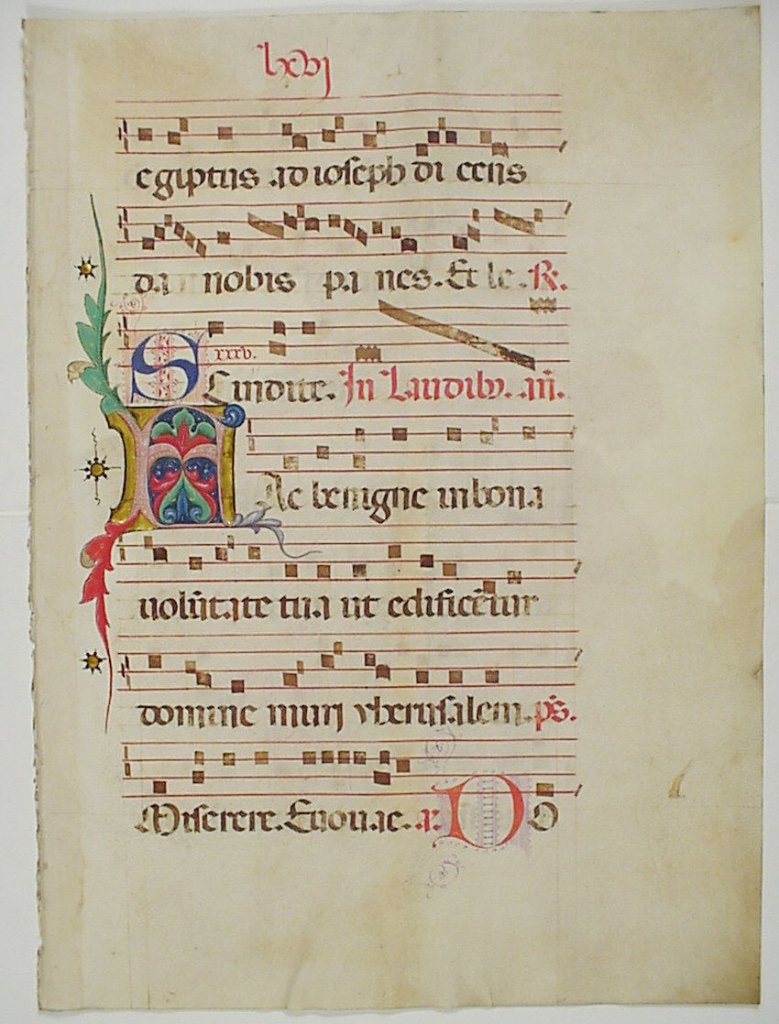 lxvj
egiptus ad ioseph di cens
da nobis pa nes. Et le. R.
xxxv.
Scindite. In Laudib. añ.
Fac benigne in bona
uolūtate tua ut edificētur
domine muri yherusalem. ps.
Miserere. Euouae. a. Do